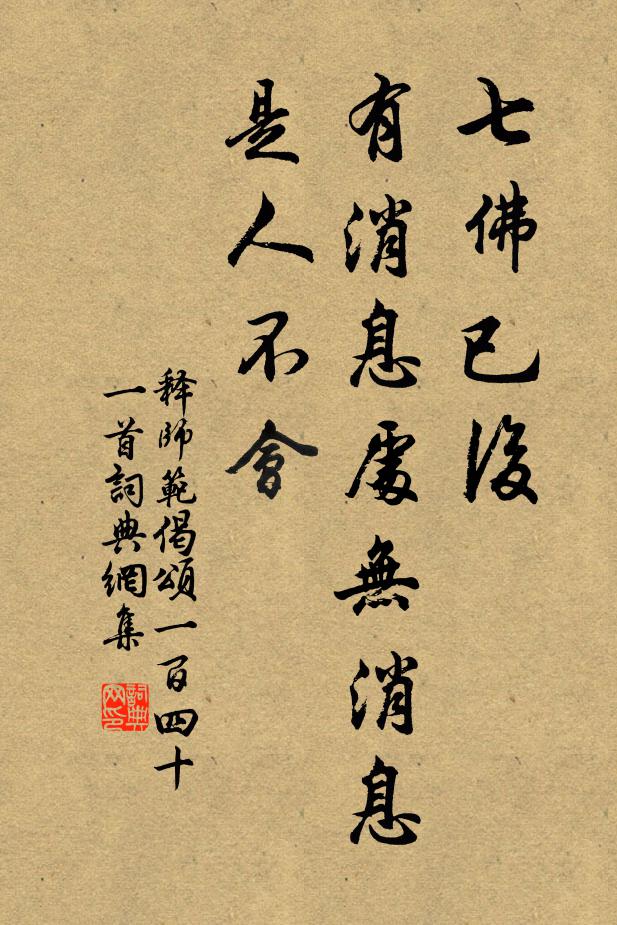 七佛已後
有消息處無消息
是人不會
释師範偈頌一百四十
一首詞典網集
詞典網印